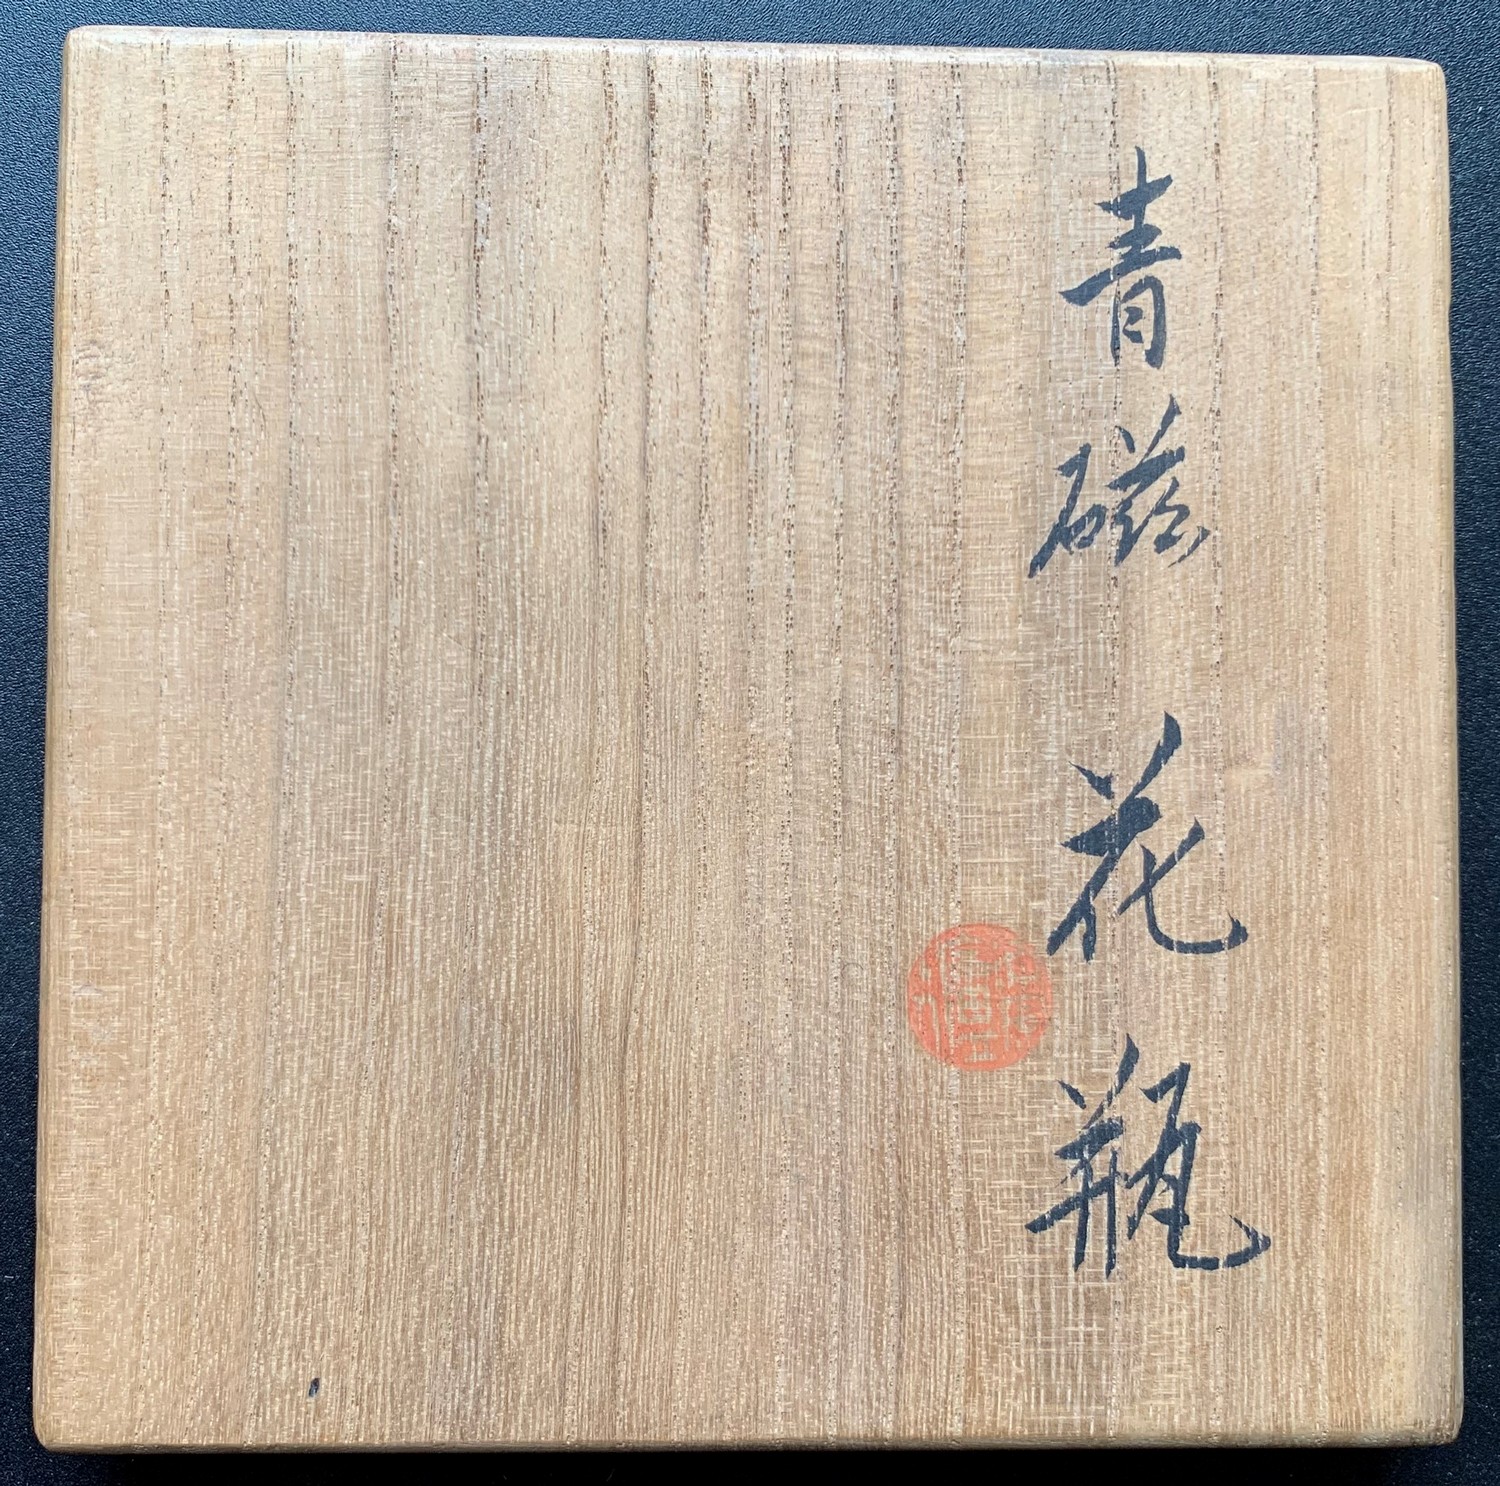 青磁花瓶